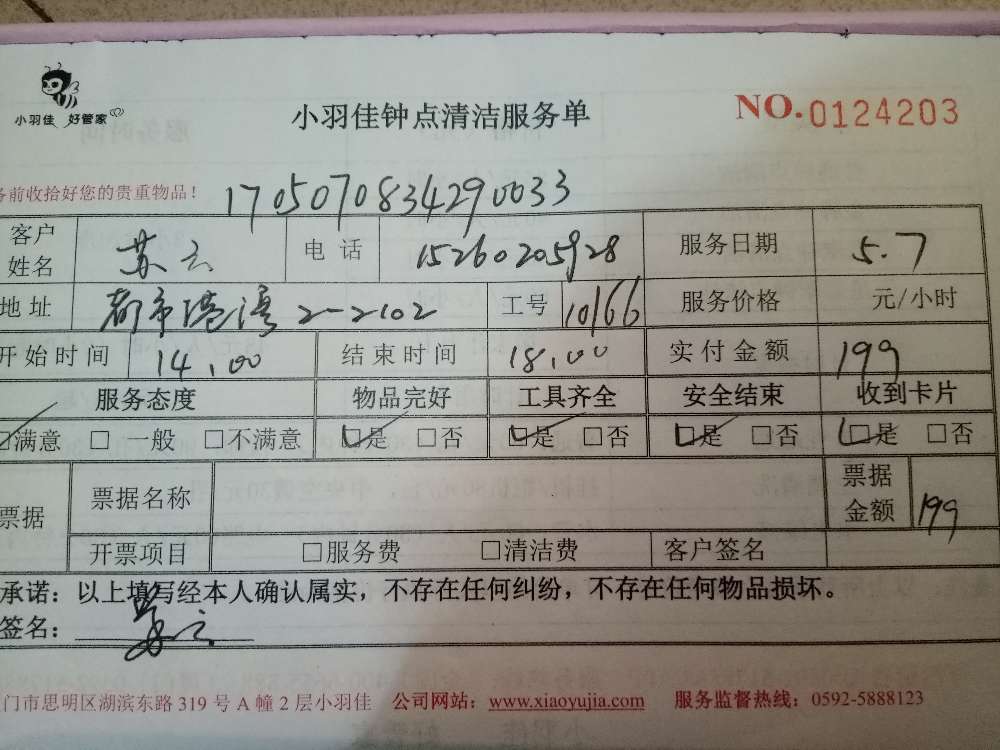 小羽佳 好管家
小羽佳钟点清洁服务单
NO.0124203
务前收拾好您的贵重物品！
1705070834290033
客户姓名 苏云 电话 15260205928 服务日期 5.7
地址 都市港湾2-2102 工号 10166 服务价格 元/小时
开始时间 14.00 结束时间 18.00 实付金额 199
服务态度 物品完好 工具齐全 安全结束 收到卡片
☑满意 □一般 □不满意 ☑是 □否 ☑是 □否 ☑是 □否 ☑是 □否
票据 票据名称 票据金额 199
开票项目 □服务费 □清洁费 客户签名
承诺：以上填写经本人确认属实，不存在任何纠纷，不存在任何物品损坏。
签名：苏云
门市思明区湖滨东路 319 号 A 幢 2 层小羽佳 公司网站：www.xiaoyujia.com 服务监督热线：0592-5888123